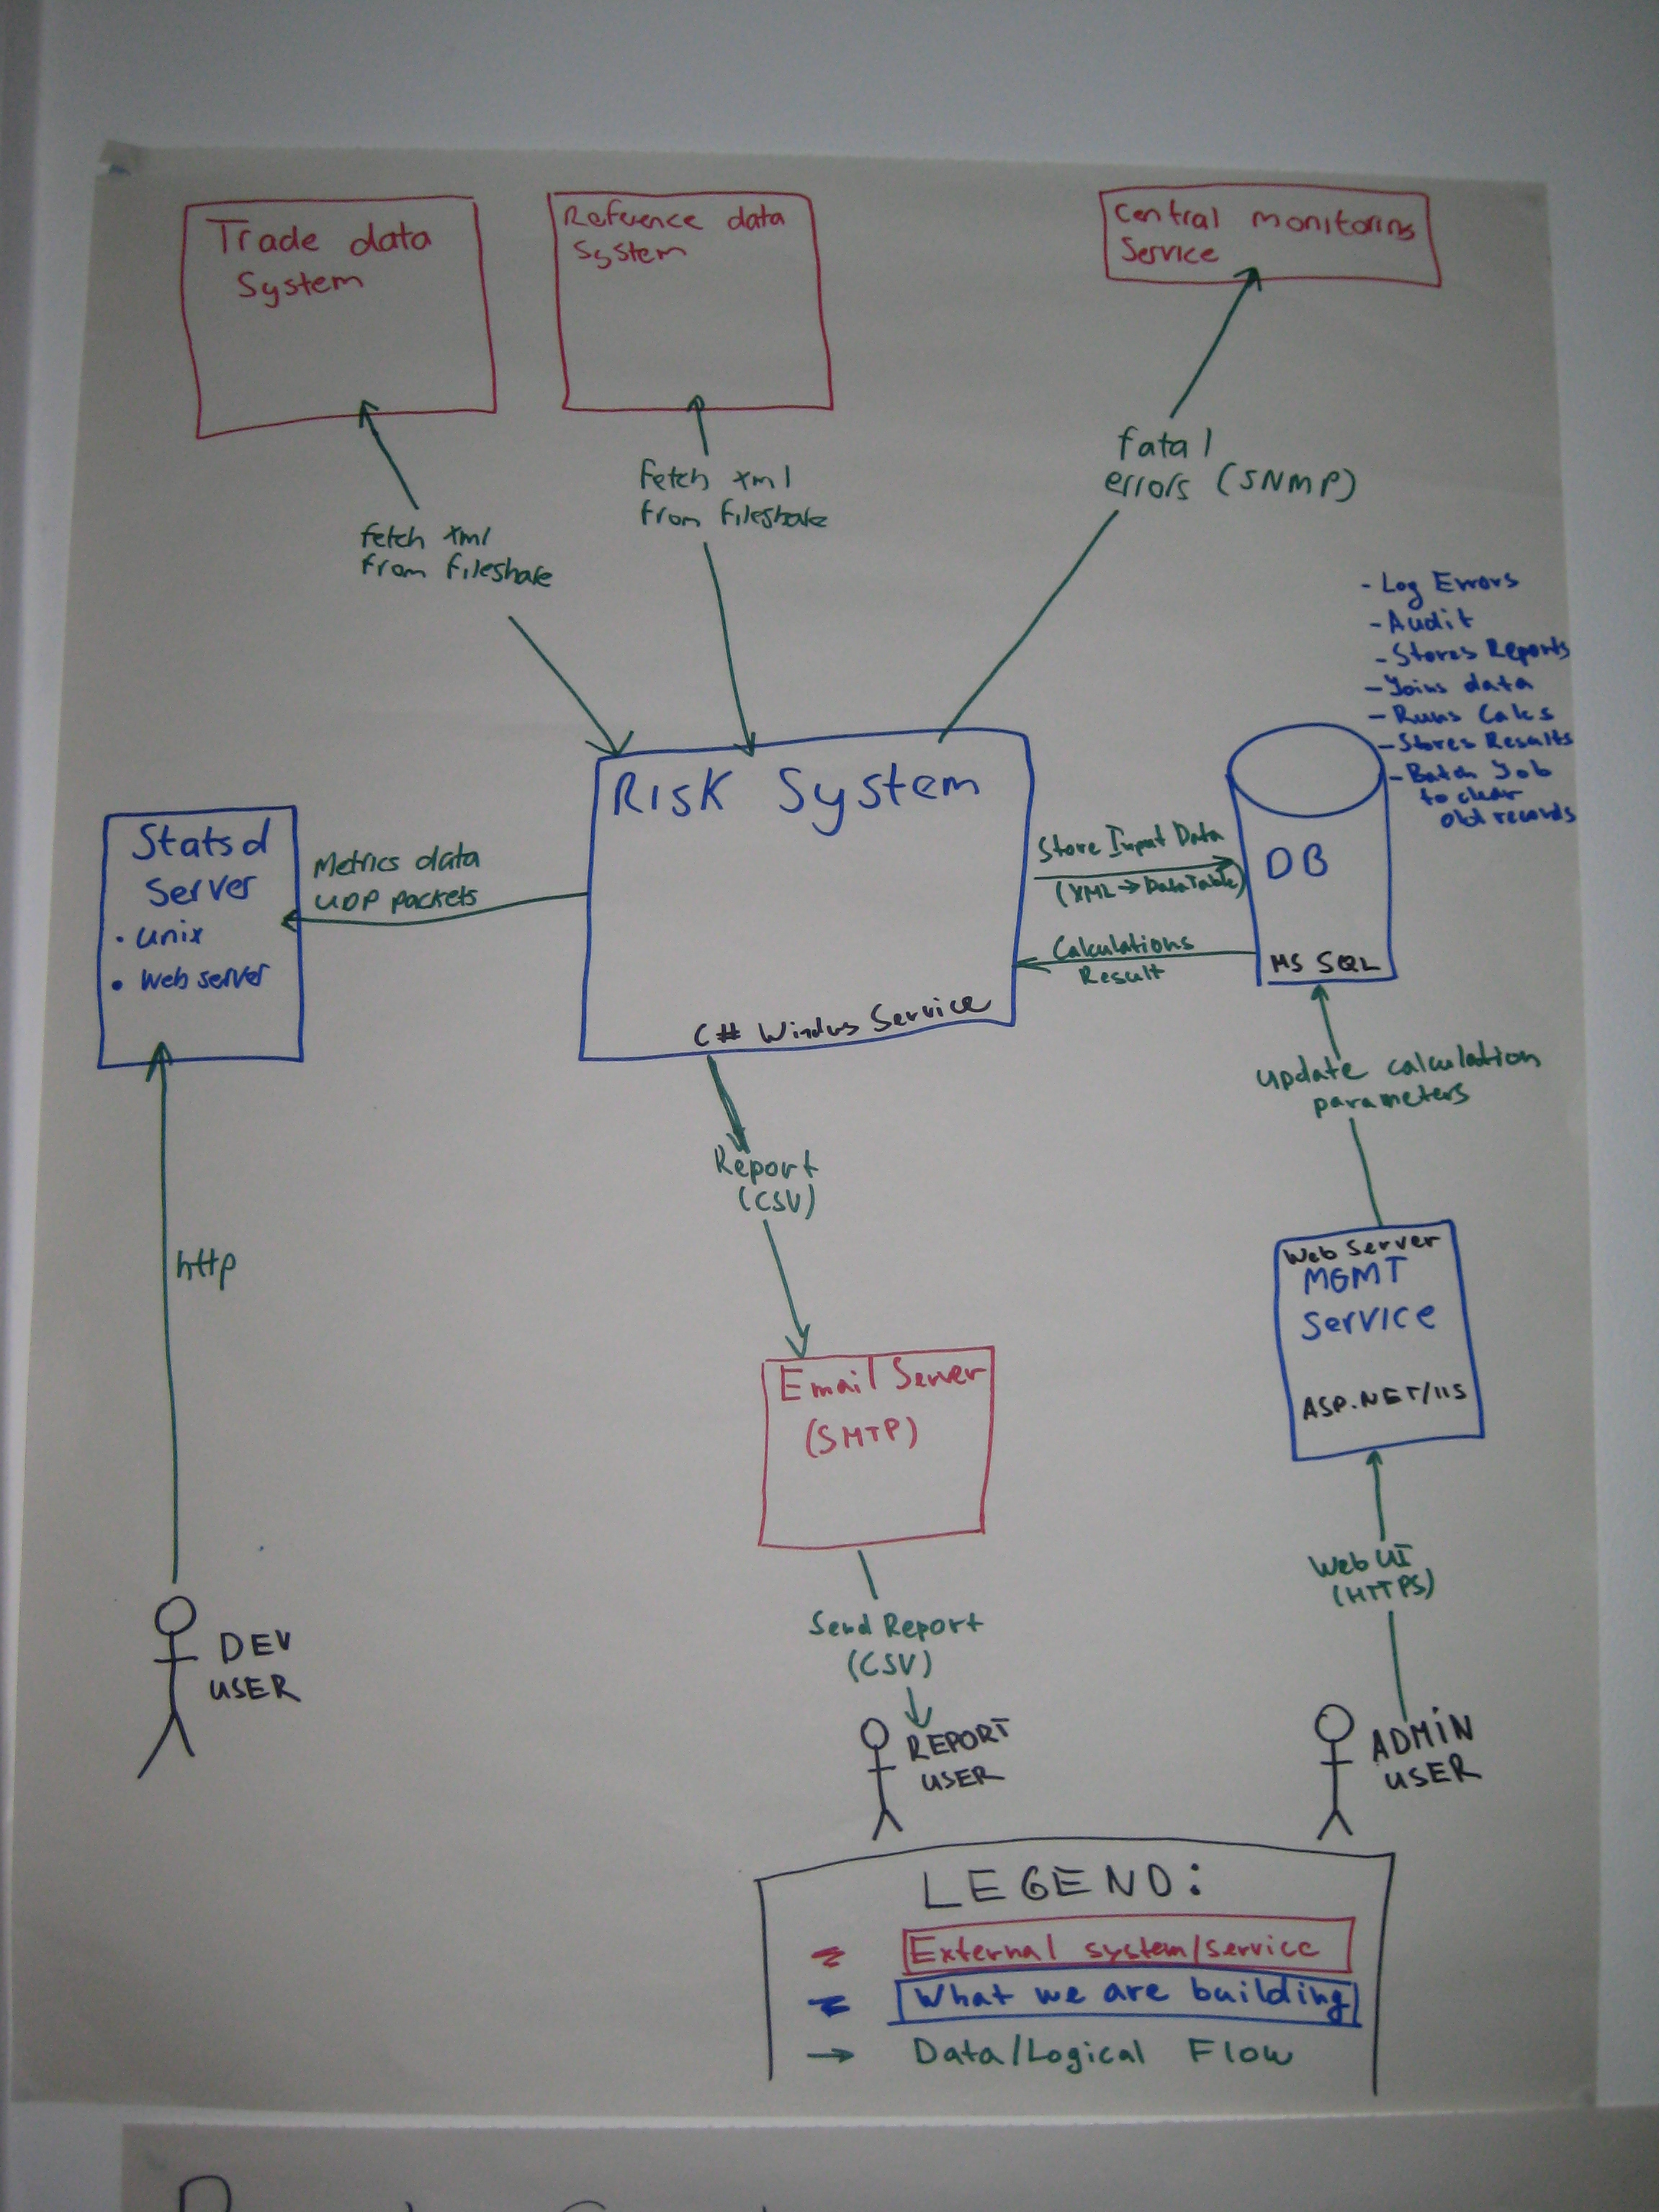 Trade data
System
Reference data
System
Central monitoring
Service
fetch xml
from fileshare
fetch xml
from fileshare
fatal
errors (SNMP)
- Log Errors
- Audit
- Stores Reports
- Joins data
- Runs Calcs
- Stores Results
- Batch Job
to clear
old records
Risk System
C# Windws Service
Statsd
Server
• unix
• web server
Metrics data
UDP packets
Store Input Data
(XML → DataTable)
Calculations
Result
DB
MS SQL
update calculation
parameters
Report
(CSV)
http
Web Server
MGMT
Service
ASP.NET/IIS
Email Server
(SMTP)
Web UI
(HTTPS)
Send Report
(CSV)
DEV
USER
REPORT
USER
ADMIN
USER
LEGEND:
External system/service
What we are building
Data/Logical Flow